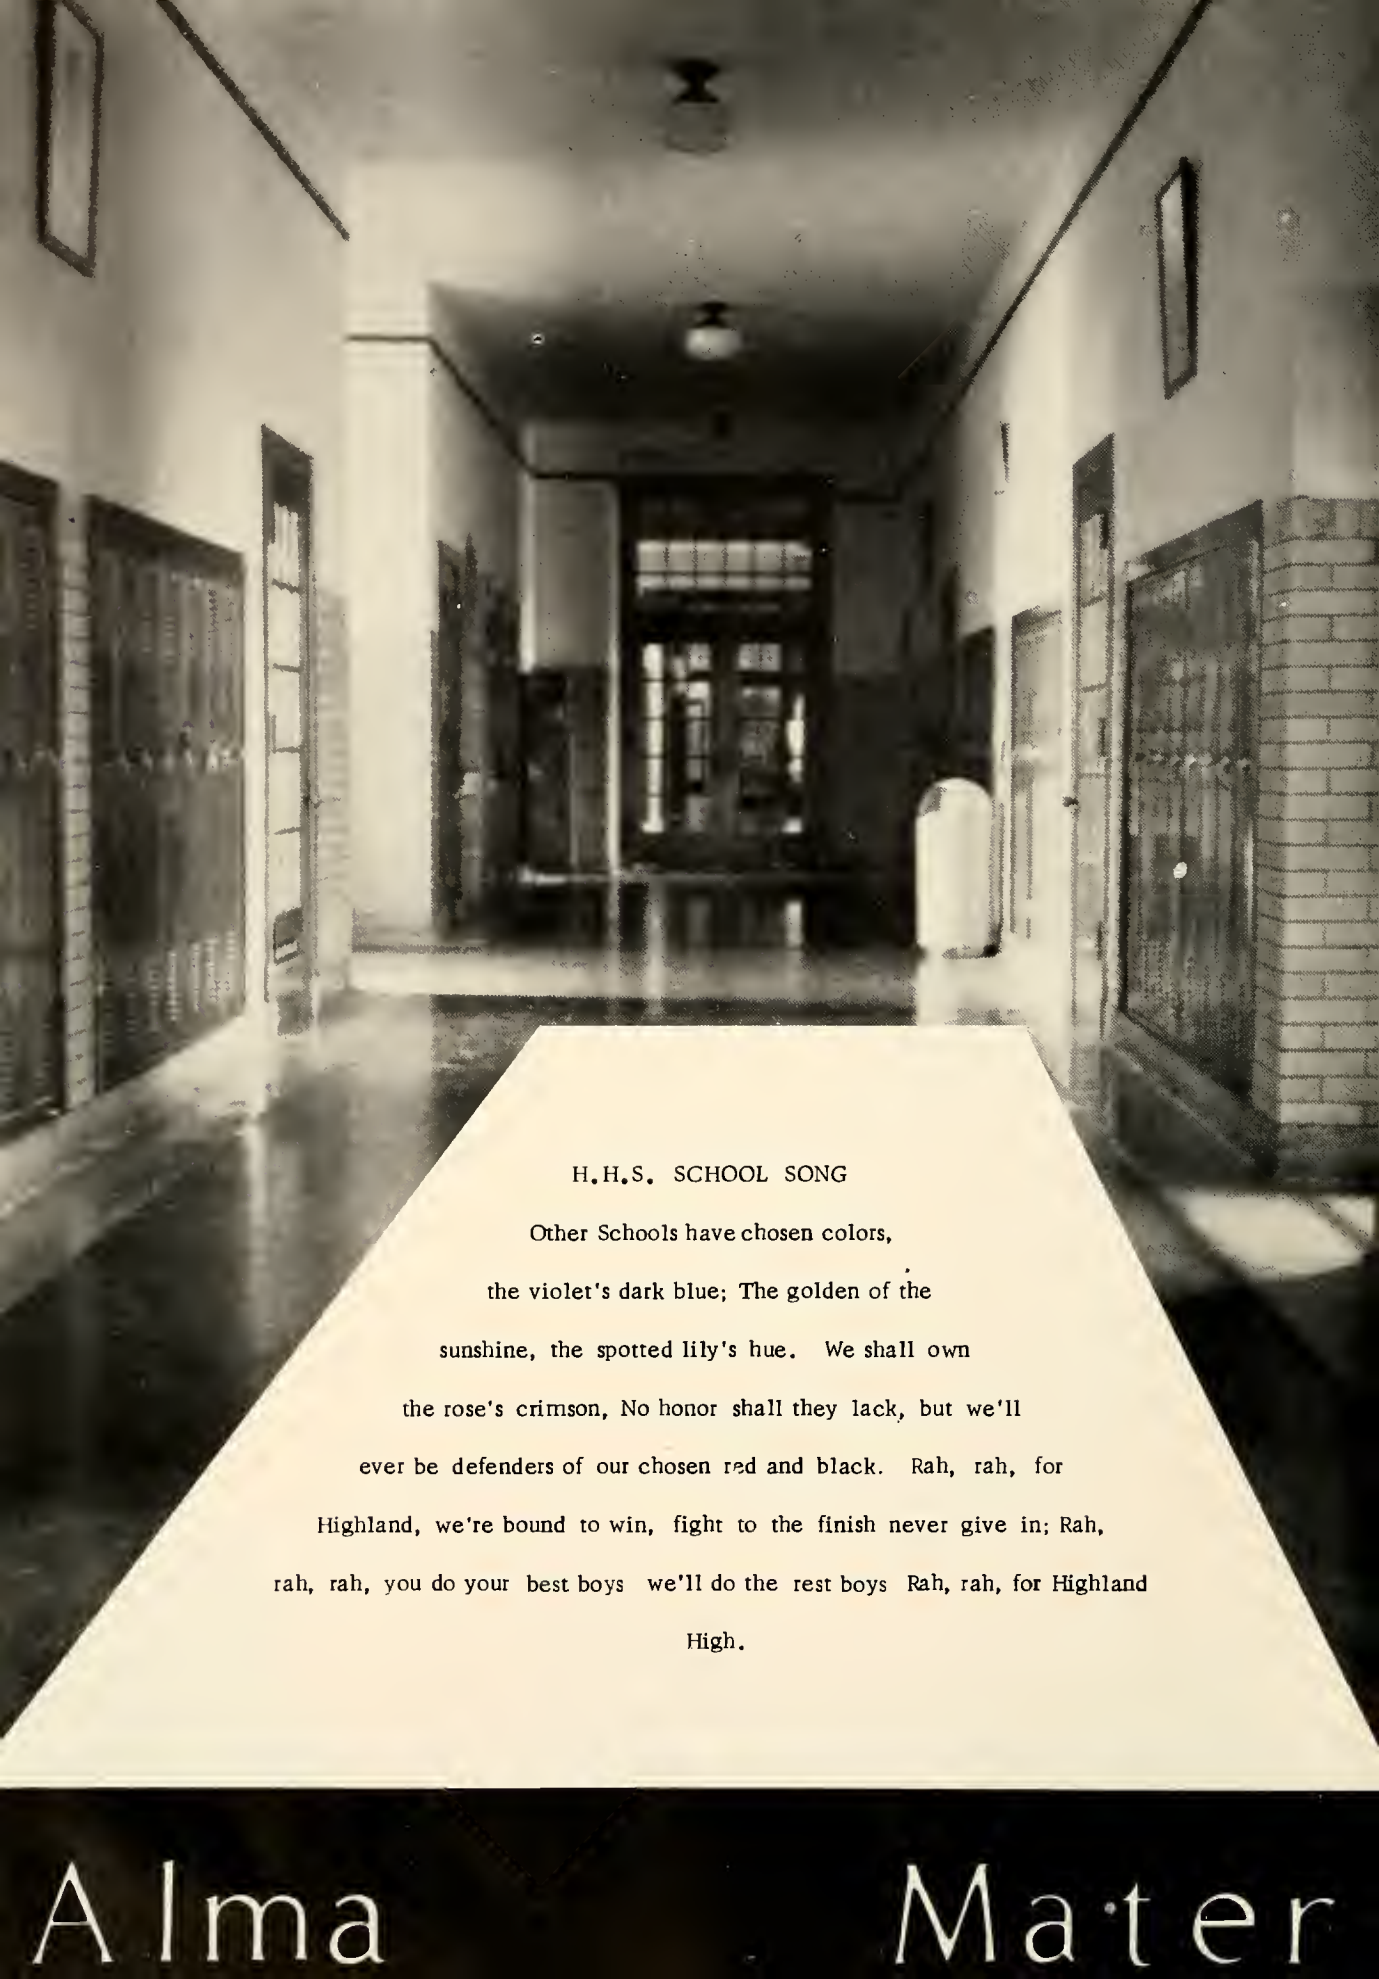 H.H.S. SCHOOL SONG
Other Schools have chosen colors,
the violet's dark blue; The golden of the
sunshine, the spotted lily's hue. We shall own
the rose's crimson, No honor shall they lack, but we'll
ever be defenders of our chosen red and black. Rah, rah, for
Highland, we're bound to win, fight to the finish never give in; Rah,
rah, rah, you do your best boys we'll do the rest boys Rah, rah, for Highland
High.
Alma Mater